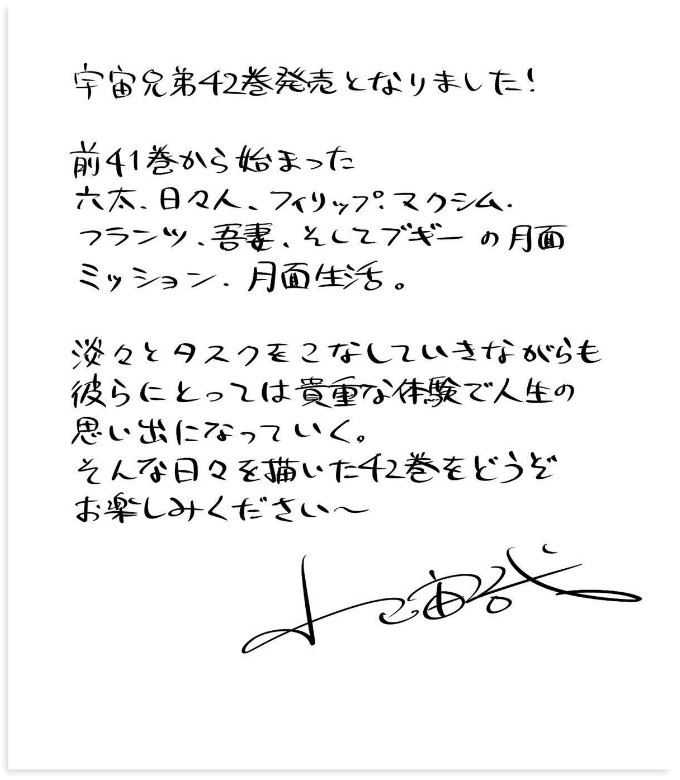 宇宙兄弟42巻発売となりました!
前41巻から始まった
六太、日々人、フィリップ、マクシム、
フランツ、吾妻、そしてブギーの月面
ミッション、月面生活。
淡々とタスクをこなしていきながらも
彼らにとっては貴重な体験で人生の
思い出になっていく。
そんな日々を描いた42巻をどうぞ
お楽しみください〜